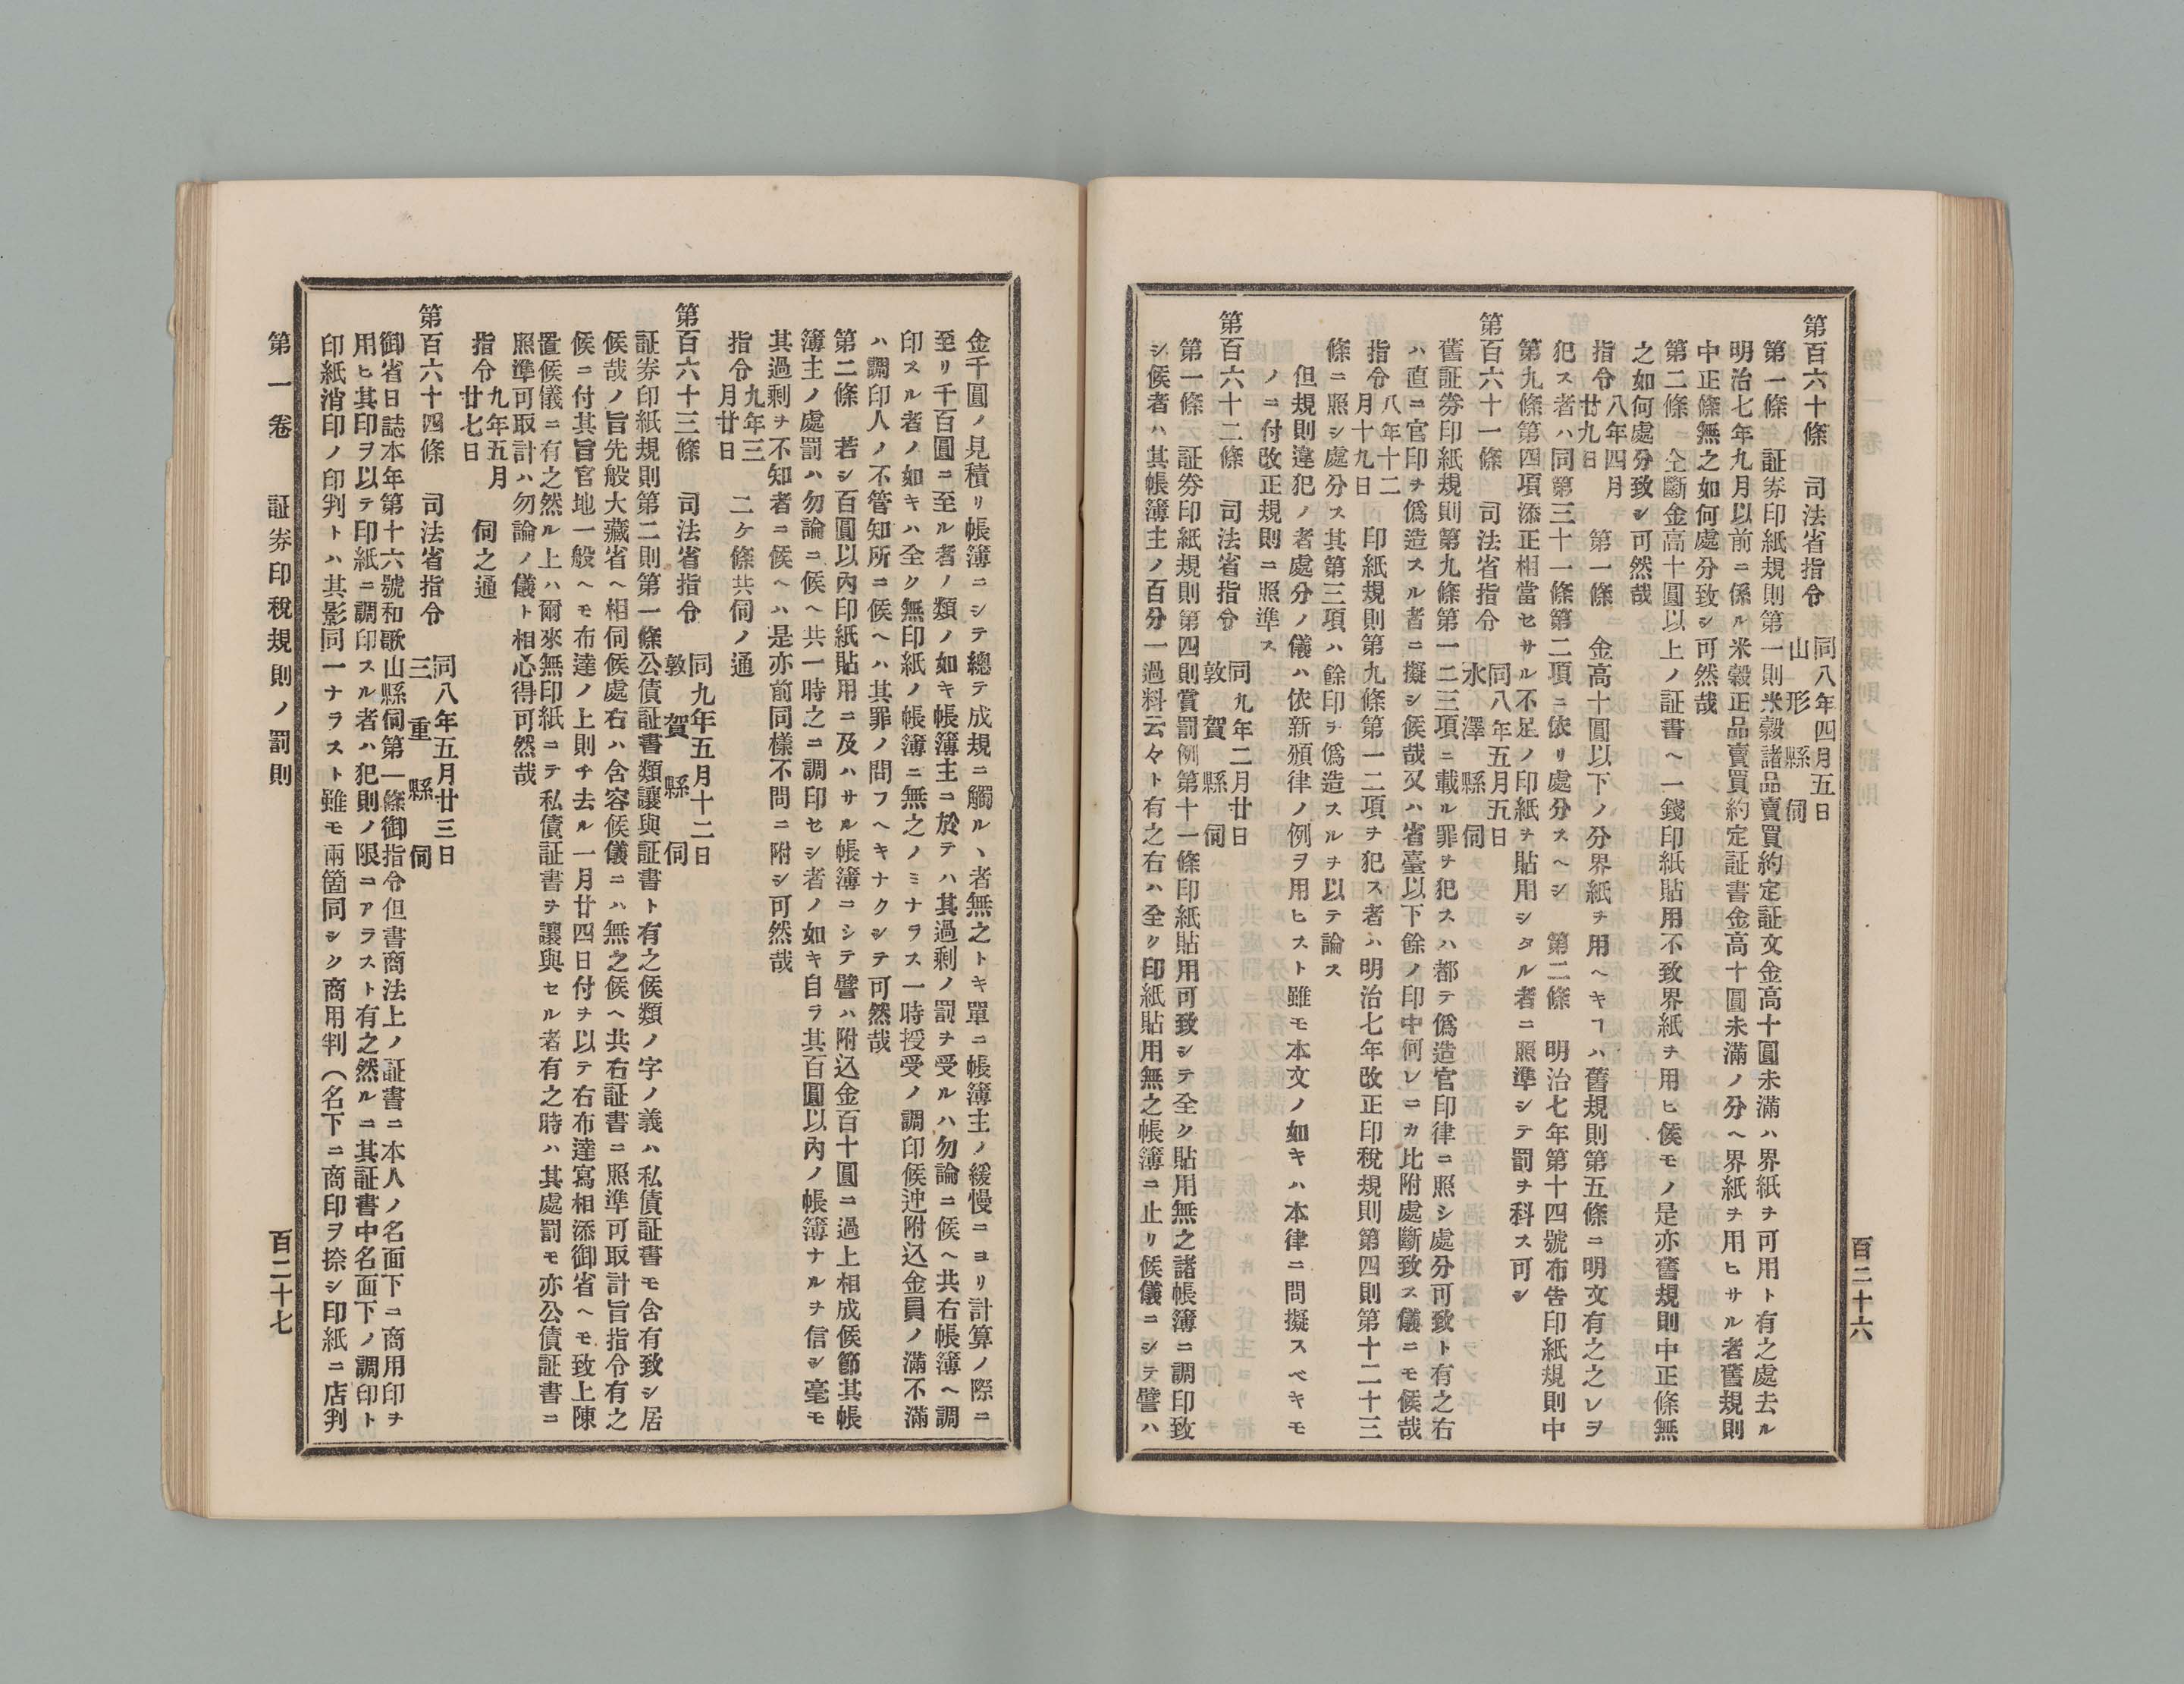 百二十六
第百六十條　司法省指令　同八年四月五日
山形縣伺
第一條　証券印紙規則第一則米穀諸品賣買約定証文金高十圓未滿ハ界紙ヲ可用ト有之處去ル
明治七年九月以前ニ係ル米穀正品賣買約定証書金高十圓未滿ノ分ヘ界紙ヲ用ヒサル者舊規則
中正條無之如何處分致シ可然哉
第二條　仝斷金高十圓以上ノ証書ヘ一錢印紙貼用不致界紙ヲ用ヒ候モノ是亦舊規則中正條無
之如何處分致シ可然哉
指令　八年四月
廿九日　第一條　金高十圓以下ノ分界紙ヲ用ヘキヿハ舊規則第五條ニ明文有之之レヲ
犯ス者ハ同第三十一條第二項ニ依リ處分スヘシ　第二條　明治七年第十四號布告印紙規則中
第九條第四項添正相當セサル不足ノ印紙ヲ貼用シタル者ニ照準シテ罰ヲ科ス可シ
第百六十一條　司法省指令　同八年五月五日
水澤縣伺
舊証券印紙規則第九條第一二三項ニ載ル罪ヲ犯スハ都テ僞造官印律ニ照シ處分可致ト有之右
ハ直ニ官印ヲ僞造スル者ニ擬シ候哉又ハ省臺以下餘ノ印中何レニカ比附處斷致ス儀ニモ候哉
指令　八年十二
月十九日　印紙規則第九條第一二項ヲ犯ス者ハ明治七年改正印稅規則第四則第十二十三
條ニ照シ處分ス其第三項ハ餘印ヲ僞造スルヲ以テ論ス
但規則違犯ノ者處分ノ儀ハ依新頒律ノ例ヲ用ヒスト雖モ本文ノ如キハ本律ニ問擬スベキモ
ノニ付改正規則ニ照準ス
第百六十二條　司法省指令　同九年二月廿日
敦賀縣伺
第一條　証券印紙規則第四則賞罰例第十一條印紙貼用可致シテ全ク貼用無之諸帳簿ニ調印致
シ候者ハ其帳簿主ノ百分一過料云々ト有之右ハ全ク印紙貼用無之帳簿ニ止リ候儀ニシテ譬ハ
金千圓ノ見積リ帳簿ニシテ總テ成規ニ觸ルヽ者無之トキ單ニ帳簿主ノ緩慢ニヨリ計算ノ際ニ
至リ千百圓ニ至ル者ノ類ノ如キ帳簿主ニ於テハ其過剩ノ罰ヲ受ルハ勿論ニ候ヘ共右帳簿ヘ調
印スル者ノ如キハ全ク無印紙ノ帳簿ニ無之ノミナラス一時授受ノ調印候迚附込金員ノ滿不滿
ハ調印人ノ不管知所ニ候ヘハ其罪ノ問フヘキナクシテ可然哉
第二條　若シ百圓以內印紙貼用ニ及ハサル帳簿ニシテ譬ハ附込金百十圓ニ過上相成候節其帳
簿主ノ處罰ハ勿論ニ候ヘ共一時之ニ調印セシ者ノ如キ自ラ其百圓以內ノ帳簿ナルヲ信シ毫モ
其過剩ヲ不知者ニ候ヘハ是亦前同樣不問ニ附シ可然哉
指令　九年三
月廿日　二ケ條共伺ノ通
第百六十三條　司法省指令　同九年五月十二日
敦賀縣伺
証券印紙規則第二則第一條公債証書類讓與証書ト有之候類ノ字ノ義ハ私債証書モ含有致シ居
候哉ノ旨先般大藏省ヘ相伺候處右ハ含容候儀ニハ無之候ヘ共右証書ニ照準可取計旨指令有之
候ニ付其旨官地一般ヘモ布達ノ上則チ去ル一月廿四日付ヲ以テ右布達寫相添御省ヘモ致上陳
置候儀ニ有之然ル上ハ爾來無印紙ニテ私債証書ヲ讓與セル者有之時ハ其處罰モ亦公債証書ニ
照準可取計ハ勿論ノ儀ト相心得可然哉
指令　九年五月
廿七日　伺之通
第百六十四條　司法省指令　同八年五月廿三日
三重縣伺
御省日誌本年第十六號和歌山縣伺第一條御指令但書商法上ノ証書ニ本人ノ名面下ニ商用印ヲ
用ヒ其印ヲ以テ印紙ニ調印スル者ハ犯則ノ限ニアラスト有之然ルニ其証書中名面下ノ調印ト
印紙消印ノ印判トハ其影同一ナラスト雖モ兩箇同シク商用判（名下ニ商印ヲ捺シ印紙ニ店判
第一卷　証券印稅規則ノ罰則
百二十七